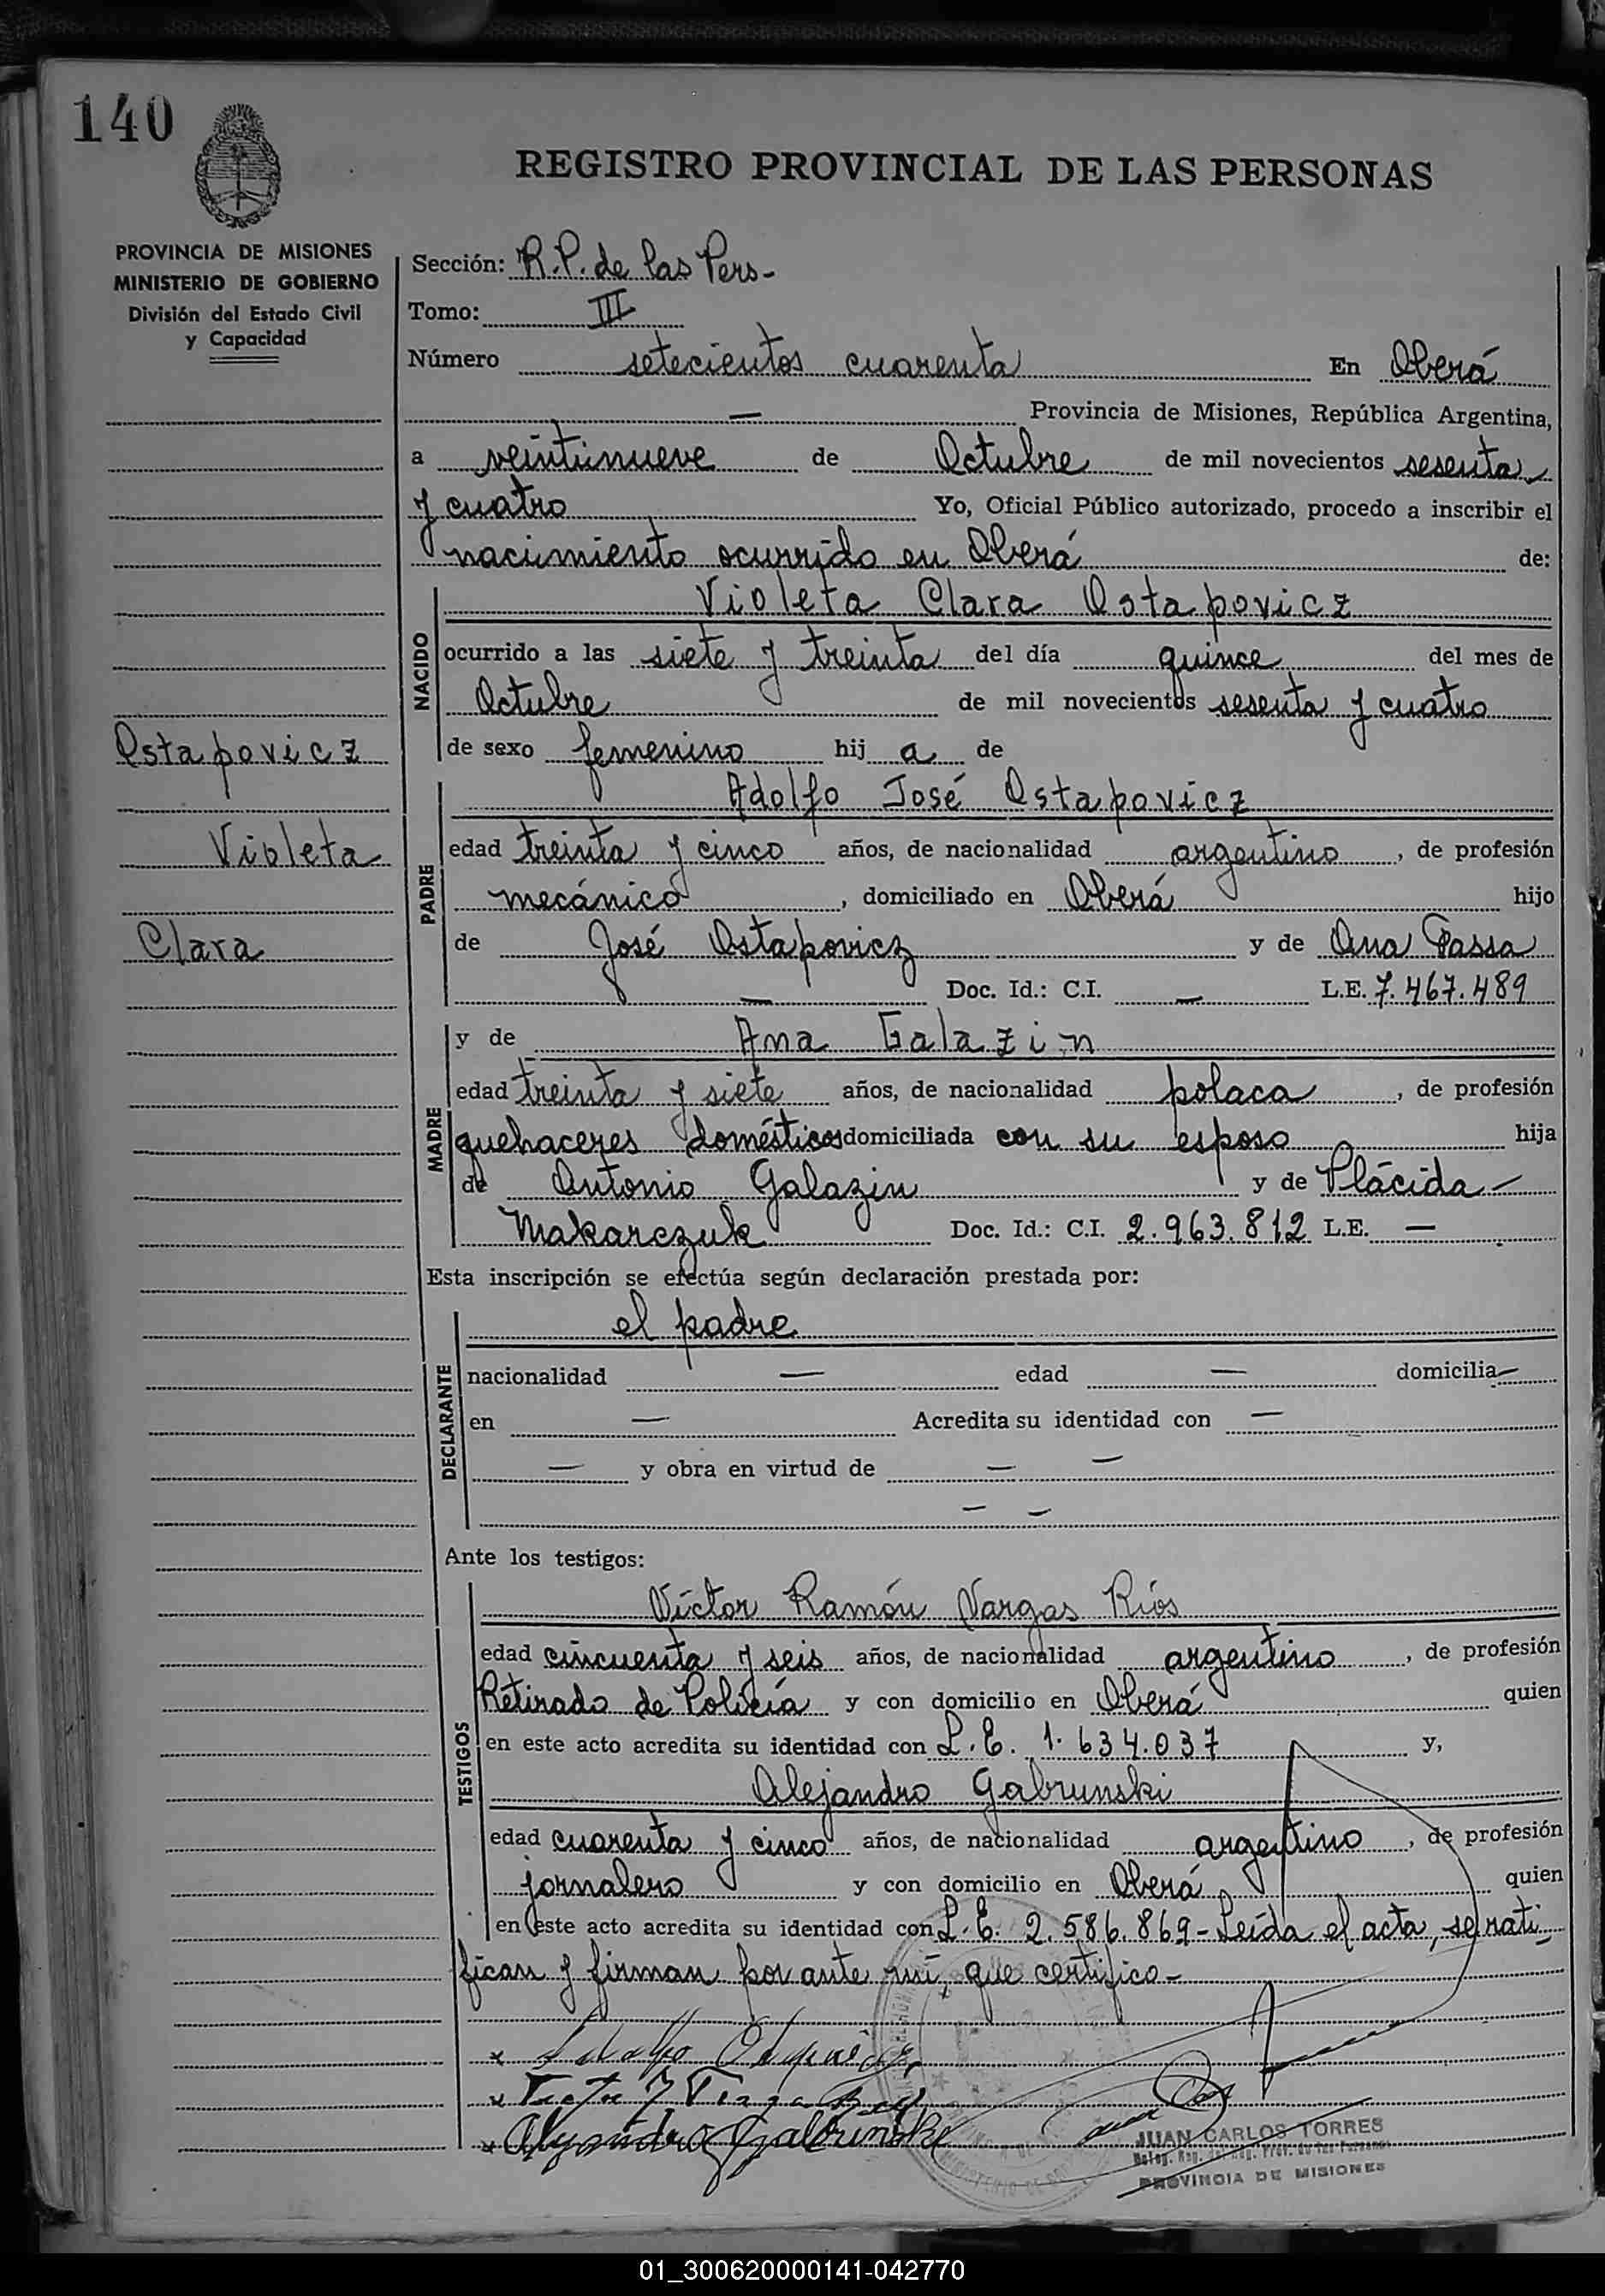 140
REGISTRO PROVINCIAL DE LAS PERSONAS
PROVINCIA DE MISIONES
MINISTERIO DE GOBIERNO
División del Estado Civil
y Capacidad
Sección: R.P. de las Pers-
Tomo: III
Número setecientos cuarenta En Oberá
— Provincia de Misiones, República Argentina,
a veintinueve de Octubre de mil novecientos sesenta
y cuatro Yo, Oficial Público autorizado, procedo a inscribir el
nacimiento ocurrido en Oberá de:
NACIDO
Violeta Clara Ostapovicz
ocurrido a las siete y treinta del día quince del mes de
Octubre de mil novecientos sesenta y cuatro
de sexo femenino hij a de
Ostapovicz
Violeta
Clara
PADRE
Adolfo José Ostapovicz
edad treinta y cinco años, de nacionalidad argentino, de profesión
mecánico, domiciliado en Oberá hijo
de José Ostapovicz y de Ana Passa
— Doc. Id.: C.I. — L.E. 7.467.489
MADRE
y de Ana Galazin
edad treinta y siete años, de nacionalidad polaca, de profesión
quehaceres domésticos domiciliada con su esposo hija
de Antonio Galazin y de Plácida —
Makarczuk Doc. Id.: C.I. 2.963.812 L.E. —
Esta inscripción se efectúa según declaración prestada por:
DECLARANTE
el padre
nacionalidad — edad — domicilia—
en — Acredita su identidad con —
— y obra en virtud de — —
— —
Ante los testigos:
TESTIGOS
Víctor Ramón Vargas Ríos
edad cincuenta y seis años, de nacionalidad argentino, de profesión
Retirado de Policía y con domicilio en Oberá quien
en este acto acredita su identidad con L.E. 1.634.037 y,
Alejandro Gabrunski
edad cuarenta y cinco años, de nacionalidad argentino, de profesión
jornalero y con domicilio en Oberá quien
en este acto acredita su identidad con L.E. 2.586.869- Leída el acta, se rati
fican y firman por ante mí, que certifico-
Alejandro Gabrunski
JUAN CARLOS TORRES
PROVINCIA DE MISIONES
01_300620000141-042770